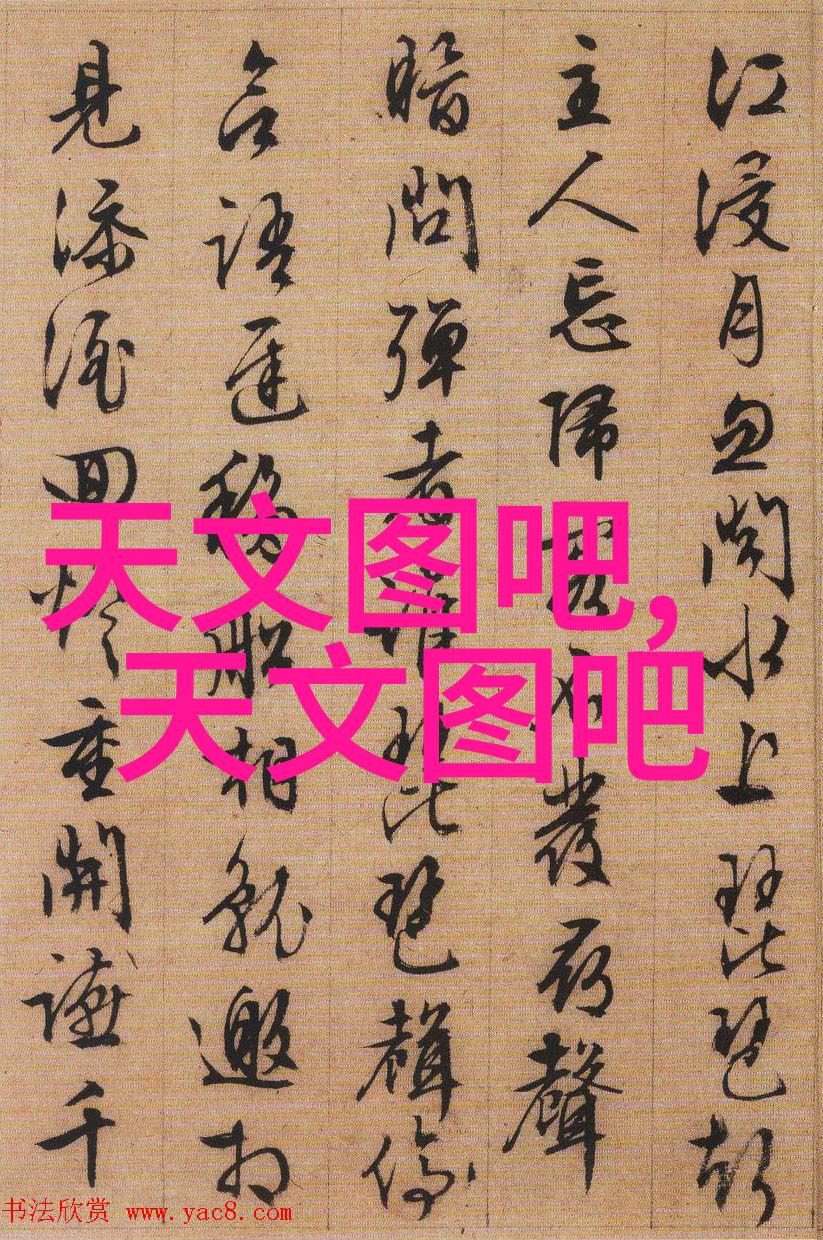 江浸月忽聞水上琵琶聲
主人忘歸客不發尋聲
暗問彈者誰琵琶聲停
欲語遲移船相就邀相
見添酒回燈重開讌千
天文图吧,
天文图吧
书法欣赏 www.yac8.com